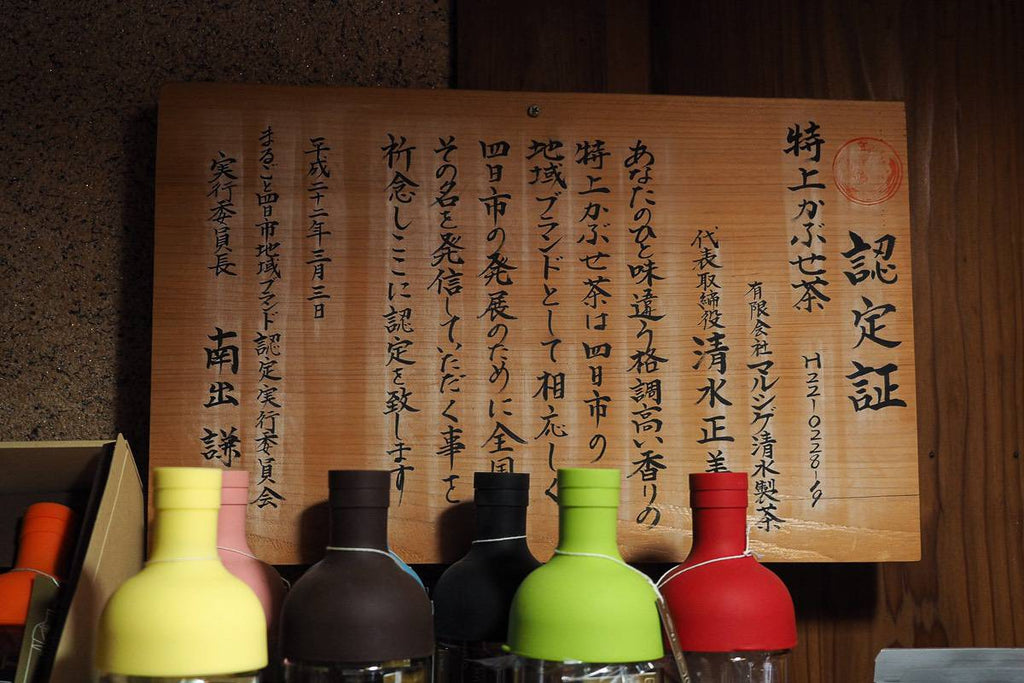 認定証
特上かぶせ茶
H22-0228-19
有限会社マルシゲ清水製茶
代表取締役 清水正美
あなたのひと味違う格調高い香りの
特上かぶせ茶は四日市の
地域ブランドとして相応しく
四日市の発展のために全国
その名を発信していただく事を
祈念しここに認定を致します
平成二十二年三月三日
まるごと四日市地域ブランド認定実行委員会
実行委員長 南出 謙